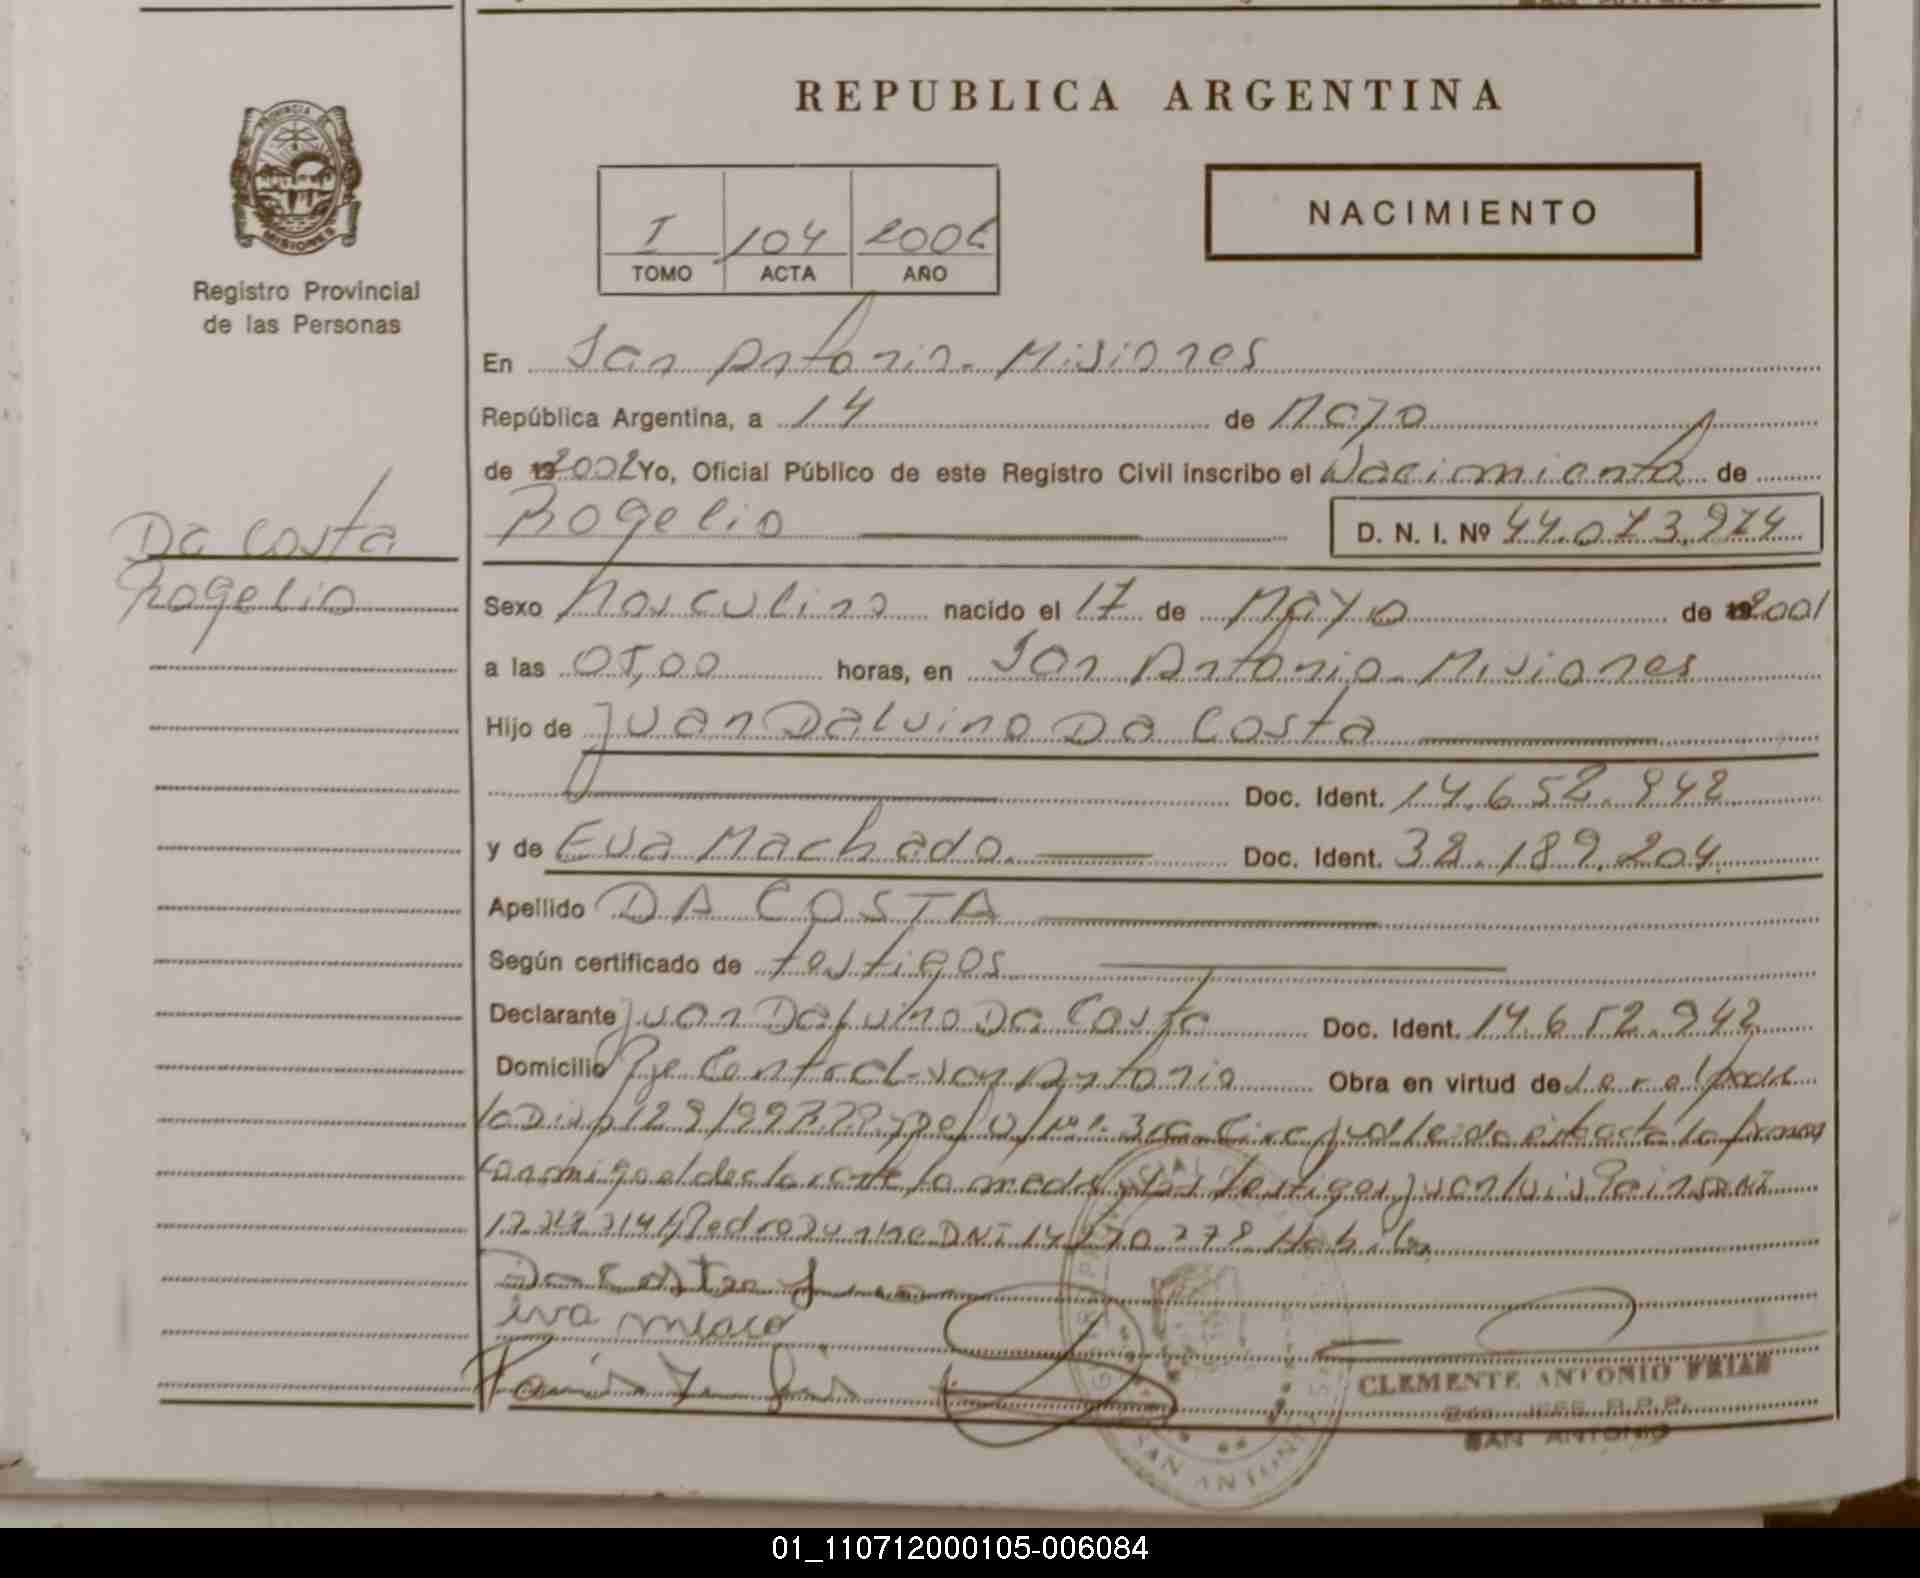 REPUBLICA ARGENTINA
PROVINCIA DE
MISIONES
Registro Provincial
de las Personas
I 104 2002
TOMO ACTA AÑO
NACIMIENTO
En San Antonio - Misiones
República Argentina, a 14 de Mayo
de 2002 Yo, Oficial Público de este Registro Civil inscribo el Nacimiento de
Da Costa
Rogelio
Rogelio D. N. I. Nº 44.073.974
Sexo Masculino nacido el 17 de Mayo de 2001
a las 05,00 horas, en San Antonio - Misiones
Hijo de Juan Dalvino Da Costa
Doc. Ident. 14.652.942
y de Eva Machado. Doc. Ident. 32.189.204
Apellido DA COSTA
Según certificado de testigos
Declarante Juan Dalvino Da Costa Doc. Ident. 14.652.942
Domicilio Pje Central - San Antonio Obra en virtud de
conmigo el declarante la madre y los testigos Juan Luis DNI
Pedro DNI
Da Costa Juan
CLEMENTE ANTONIO FRIAS
JEFE R.P.P.
SAN ANTONIO
SAN ANTONIO
01_110712000105-006084